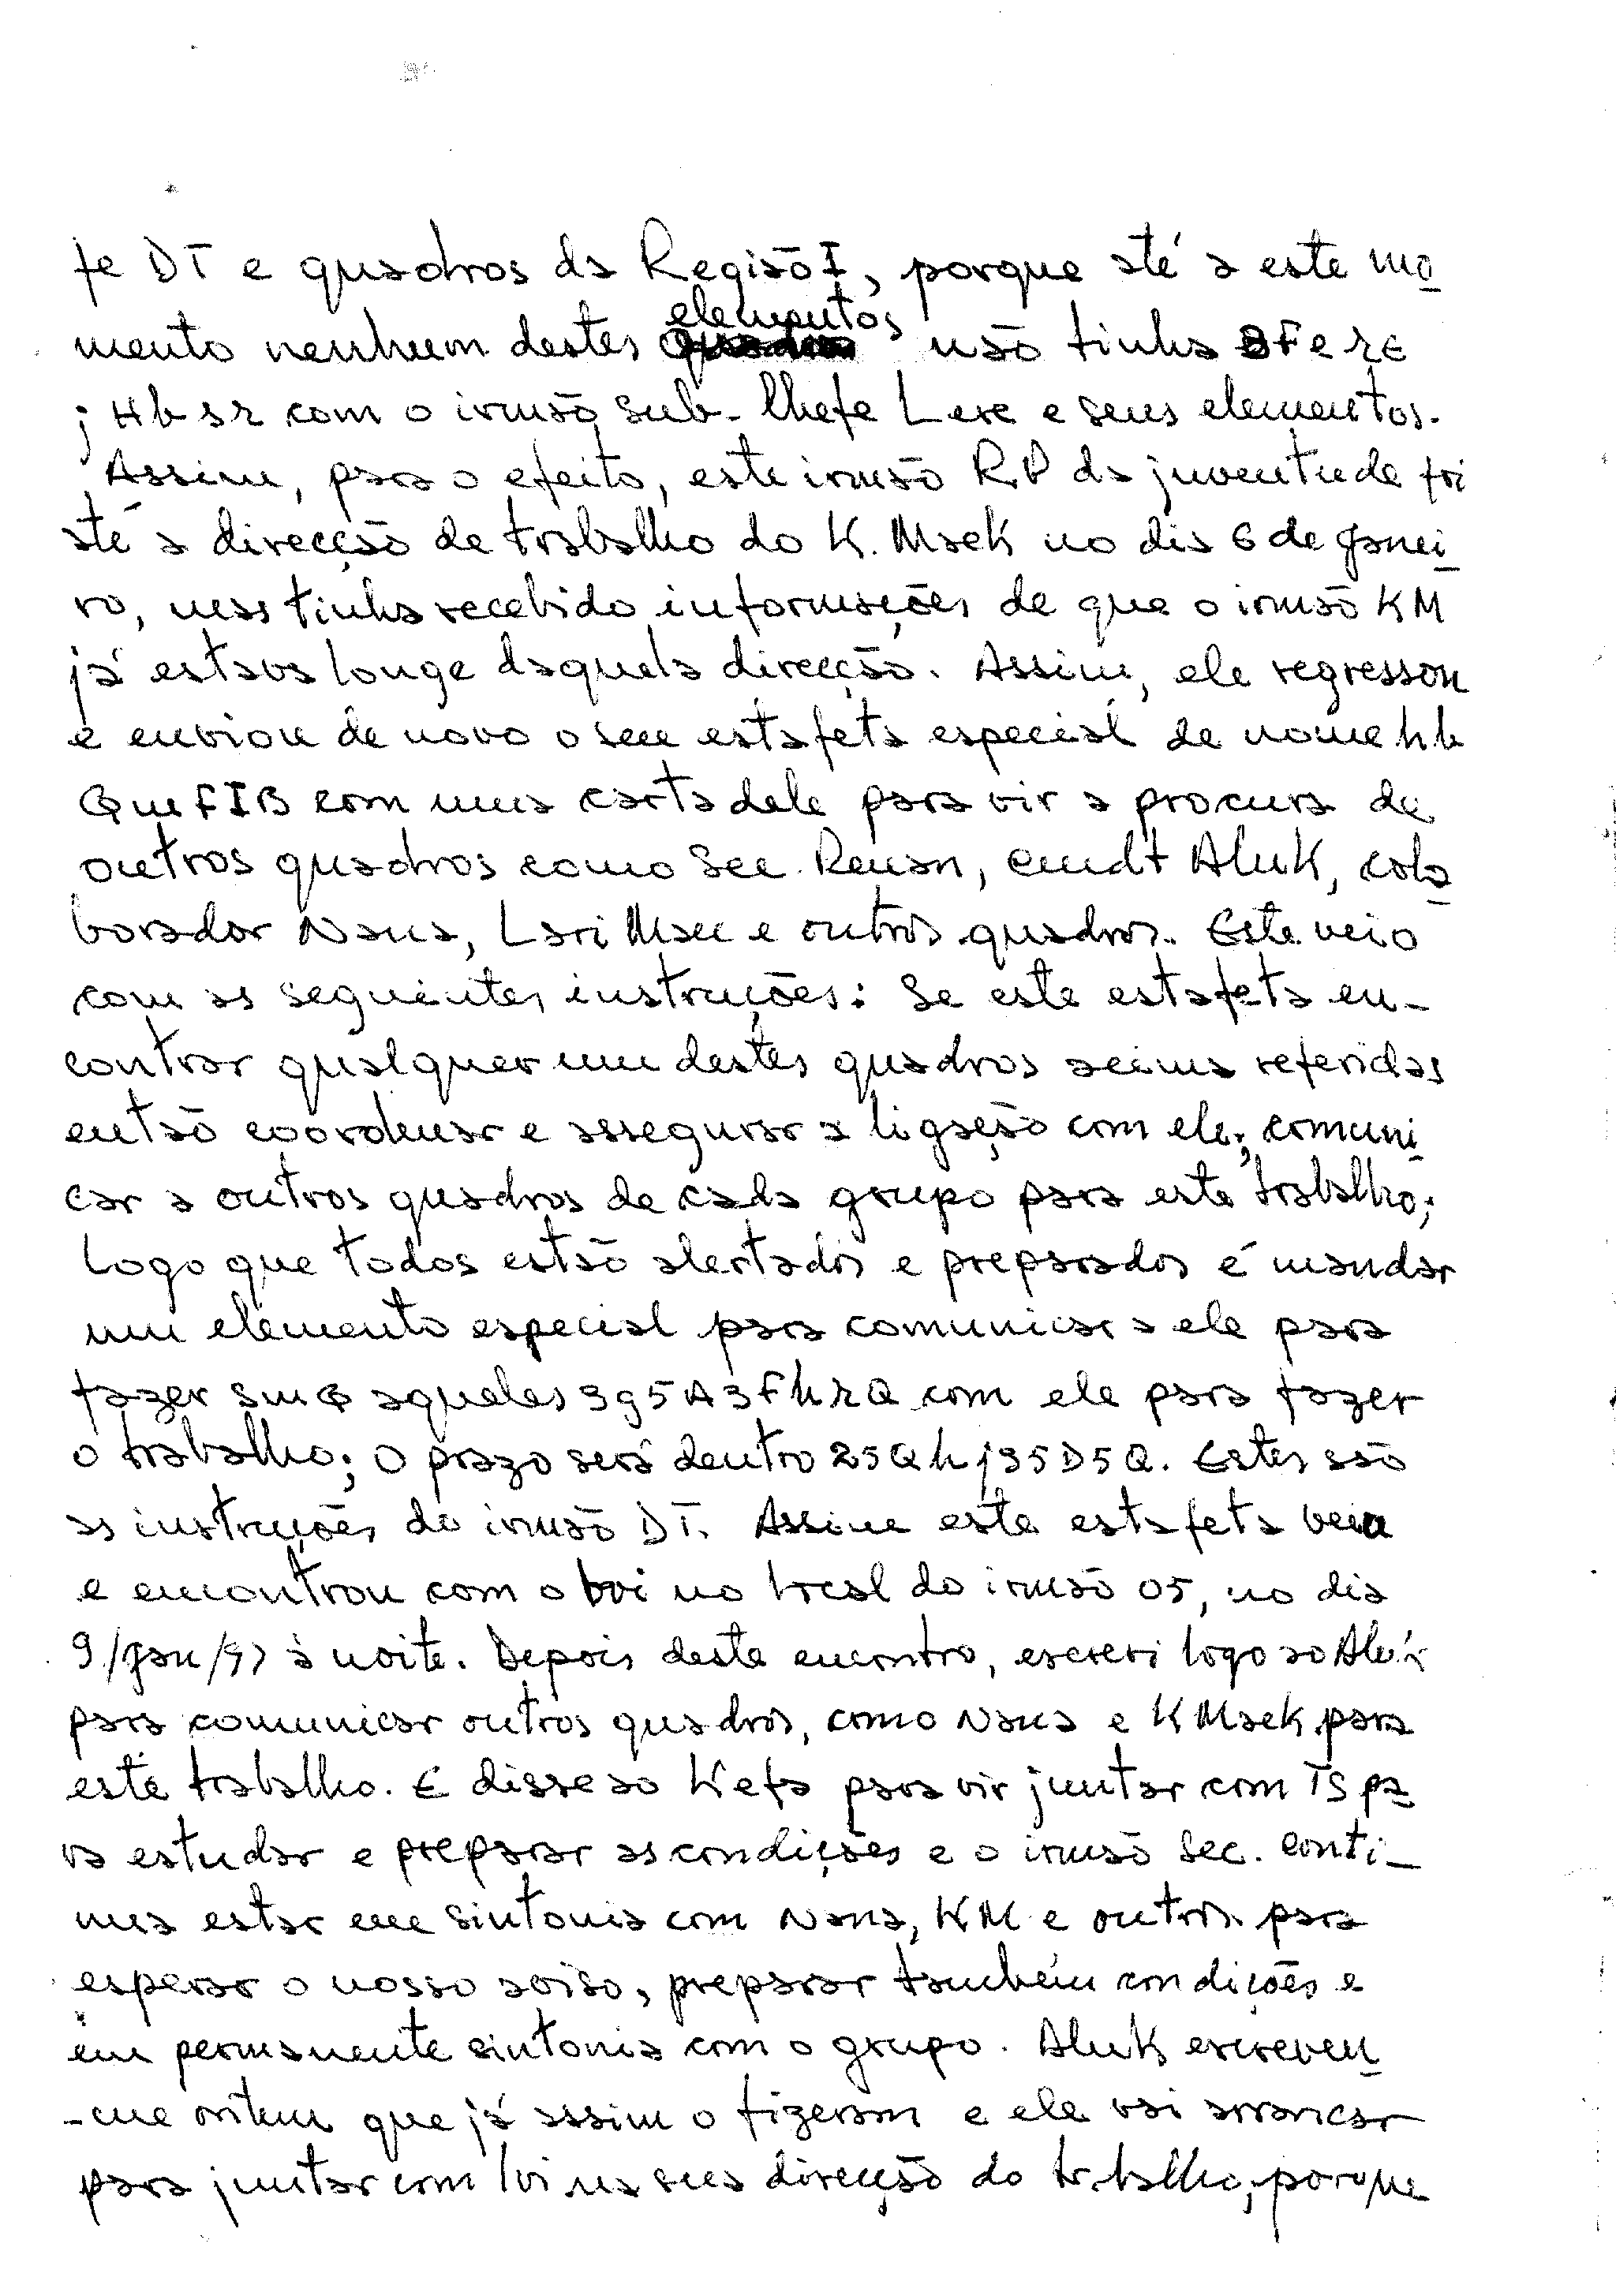 fe DT e quadros da Região I, porque até a este mo
mento nenhum destes elementos não tinha BFere
jHbsr com o irmão Sub-Chefe Lere e seus elementos.
Assim, para o efeito, este irmão R.P da juventude foi
até a direcção de trabalho do K. Maek no dia 6 de Janei
ro, mas tinha recebido informações de que o irmão KM
já estava longe daquela direcção. Assim, ele regressou
e enviou de novo o seu estafeta especial de nome hb
QmFIB com uma carta dele para vir a procura de
outros quadros como Sec. Renan, cmdt Aluk, cola
borador Nana, Lari Mau e outros quadros. Este veio
com as seguintes instruções: Se este estafeta en-
contrar qualquer um destes quadros acima referidas
então coordenar e assegurar a ligação com ele; comuni
car a outros quadros de cada grupo para este trabalho;
Logo que todos estão alertados e preparados é mandar
um elemento especial para comunicar a ele para
fazer smQ aqueles 3g5A3FhrQ com ele para fazer
o trabalho; O prazo será dentro 25Qhj35D5Q. Estes são
as instruções do irmão DT. Assim este estafeta veio
e encontrou com o Loi no local do irmão 05, no dia
9/Jan/97 à noite. Depois deste encontro, escrevi logo ao Aluk
para comunicar outros quadros, como Nana e K Maek para
este trabalho. E disse ao Kefa para vir juntar com TS pa
ra estudar e preparar as condições e o irmão Sec. conti-
nua estar em sintonia com Nana, KM e outros para
esperar o nosso aviso, preparar também condições e
em permanente sintonia com o grupo. Aluk escreveu
-me ontem que já assim o fizeram e ele vai arrancar
para juntar com Loi na sua direcção do trabalho, porque